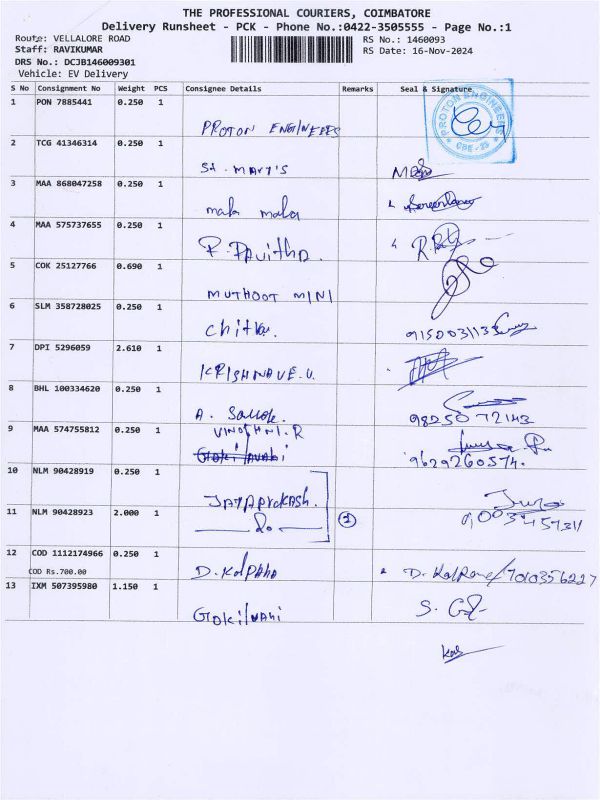 THE PROFESSIONAL COURIERS, COIMBATORE
Delivery Runsheet - PCK - Phone No.:0422-3505555 - Page No.:1
Route: VELLALORE ROAD
RS No.: 1460093
Staff: RAVIKUMAR
RS Date: 16-Nov-2024
DRS No.: DCJB146009301
Vehicle: EV Delivery
S No Consignment No Weight PCS Consignee Details Remarks Seal & Signature
1 PON 7885441 0.250 1
PROTON ENGINEERS
PROTON ENGINEERS
CBE - 23
2 TCG 41346314 0.250 1
St. MARY'S
3 MAA 868047258 0.250 1
mala mala
4 MAA 575737655 0.250 1
P. PAVITHA.
5 COK 25127766 0.690 1
MUTHOOT MINI
6 SLM 358728025 0.250 1
Chitra.
9150031133
7 DPI 5296059 2.610 1
KRISHNAVE.U.
8 BHL 100334620 0.250 1
A.
98250 72143
9 MAA 574755812 0.250 1
VINOTHNI.R
9629260574.
10 NLM 90428919 0.250 1
JAYAPRAKASH.
11 NLM 90428923 2.000 1
Do. 2
12 COD 1112174966 0.250 1
COD Rs.700.00
D. Kalpana
D. 7010356227
13 IXM 507395980 1.150 1
Gokilvani
S.